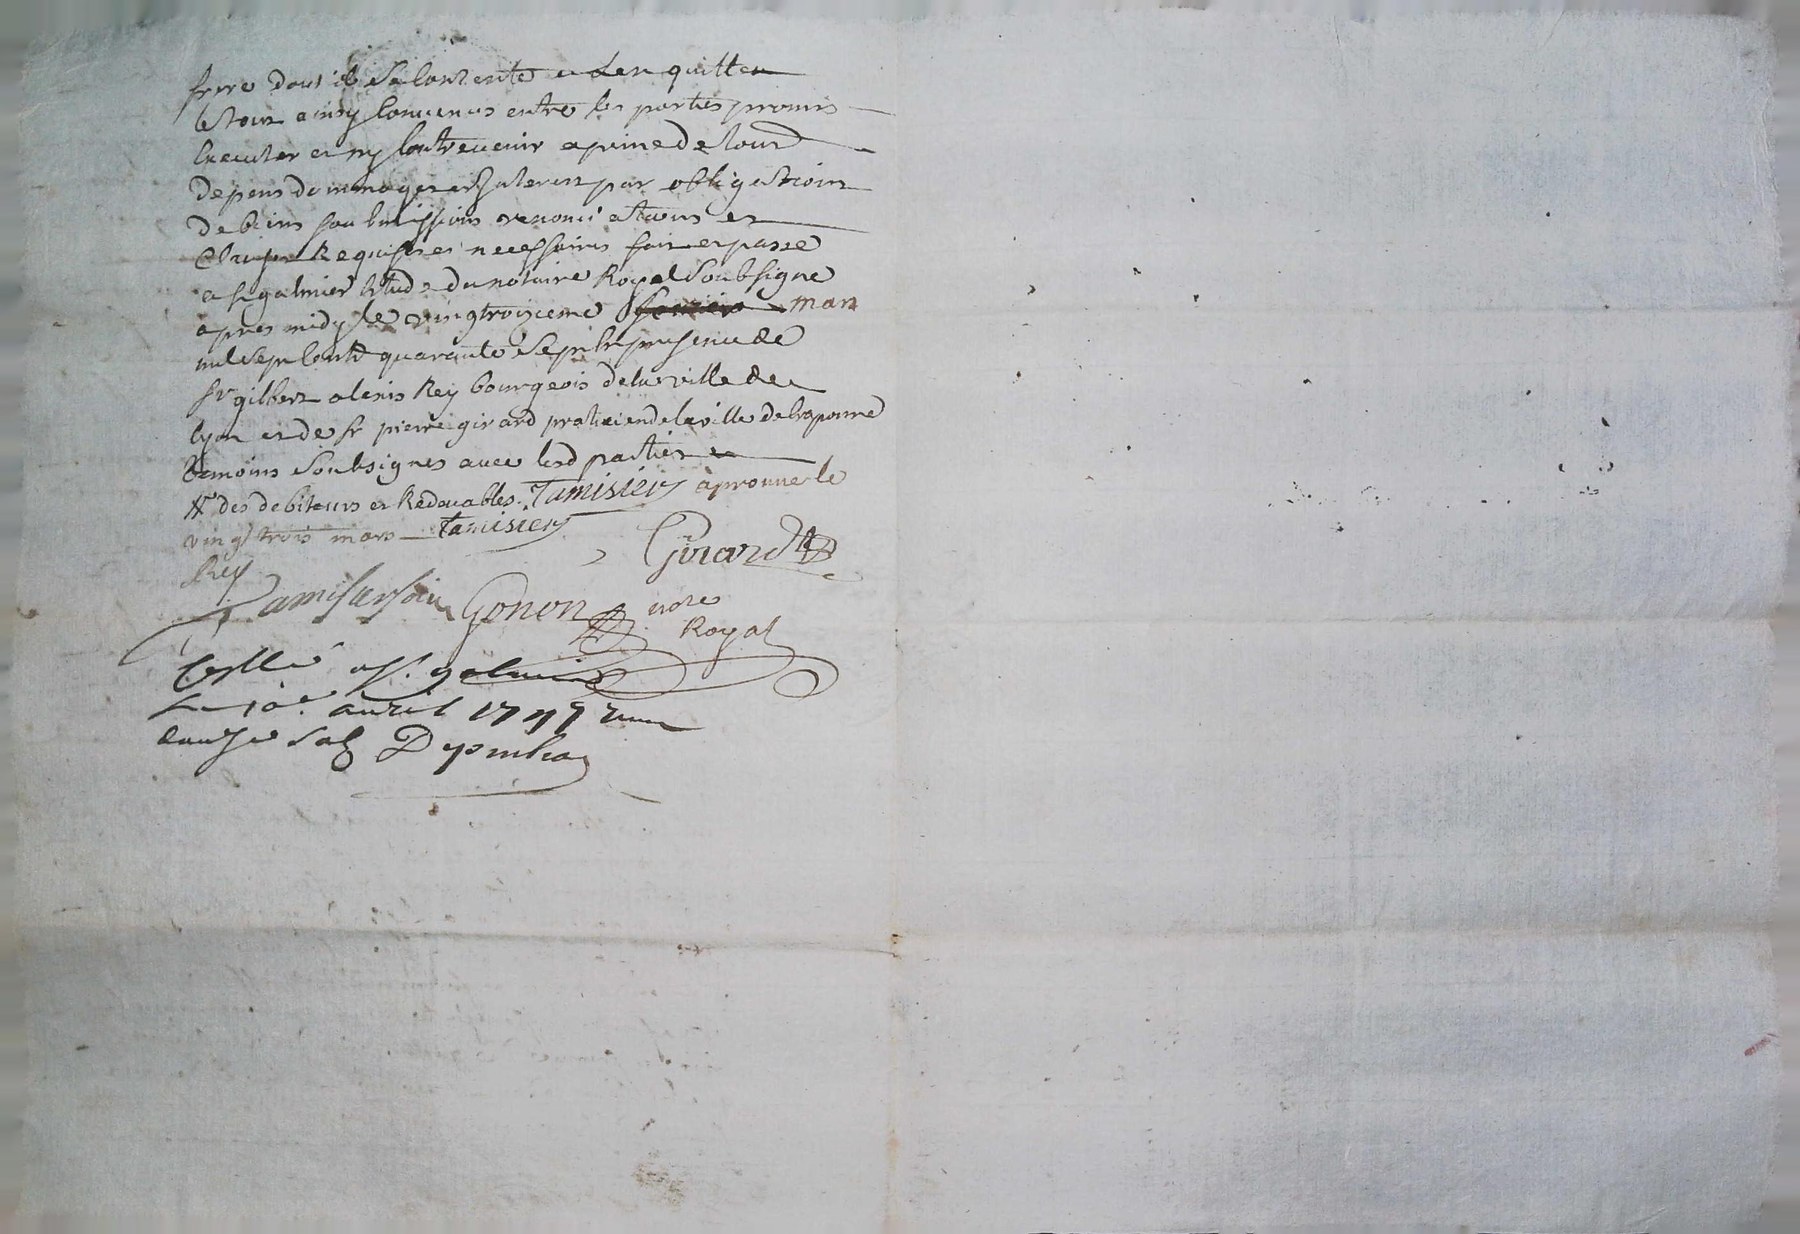 frere dont il se contente et len quitte
le tout ainsy convenus entre les parties promis
executer et ny contrevenir a peine de tous
depens dommages et Interest par obligation
de biens soubmissions renonciations et
Clauses Requises et necessaires fait et passé
a st galmier Etude du notaire Royal Soubsigné
apres midy le vingtroisieme mars
mil sept cents quarante sept En presence de
Sr gilbert alexis Rey bourgeois de la ville de
lyon et de Sr pierre girard praticien de la ville de Craponne
temoins Soubsignes avec lesd parties
des debiteurs et Redevables. Tamisier aprouve le
vingt trois mars Tamisier
Girard
Rey
Tamisier Gonon nore
Royal
Conllé a St. galmier
Le 10e. avril 1747
douze sols